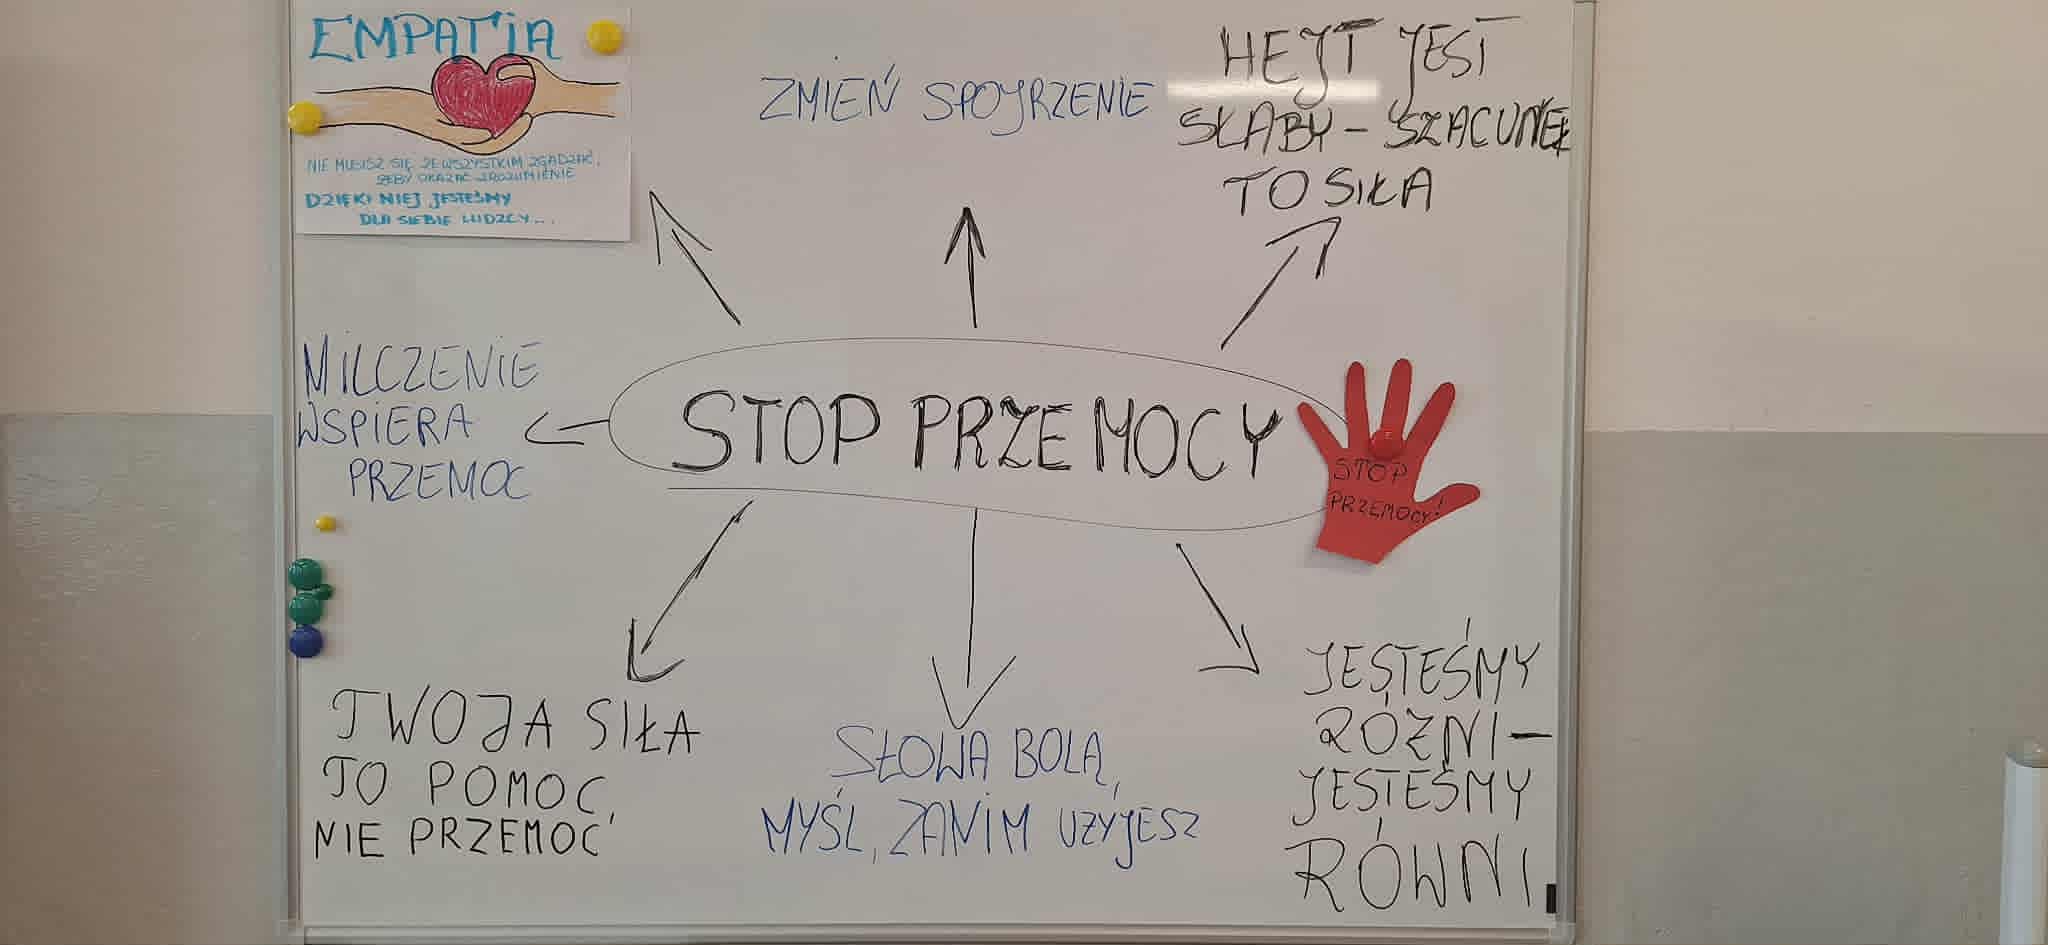 EMPATIA
NIE MUSISZ SIĘ ZE WSZYSTKIM ZGADZAĆ,
ŻEBY OKAZAĆ ZROZUMIENIE
DZIĘKI NIEJ JESTEŚMY
DLA SIEBIE LUDZCY...
ZMIEŃ SPOJRZENIE
HEJT JEST
SŁABY - SZACUNEK
TO SIŁA
MILCZENIE
WSPIERA
PRZEMOC
STOP PRZEMOCY
STOP
PRZEMOCY!
TWOJA SIŁA
TO POMOC,
NIE PRZEMOC
SŁOWA BOLĄ,
MYŚL, ZANIM UŻYJESZ
JESTEŚMY
RÓŻNI -
JESTEŚMY
RÓWNI